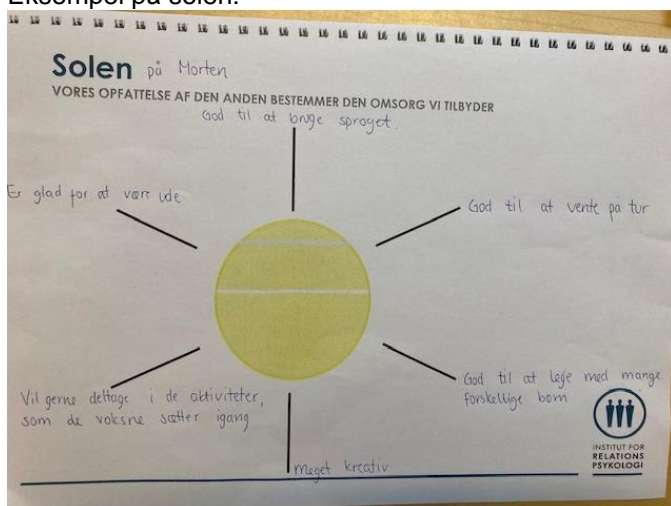 Eksempel på solen:
Solen på Morten
VORES OPFATTELSE AF DEN ANDEN BESTEMMER DEN OMSORG VI TILBYDER
God til at bruge sproget.
Er glad for at være ude
God til at vente på tur
Vil gerne deltage i de aktiviteter,
som de voksne sætter igang
God til at lege med mange
forskellige børn
Meget kreativ
INSTITUT FOR
RELATIONS
PSYKOLOGI